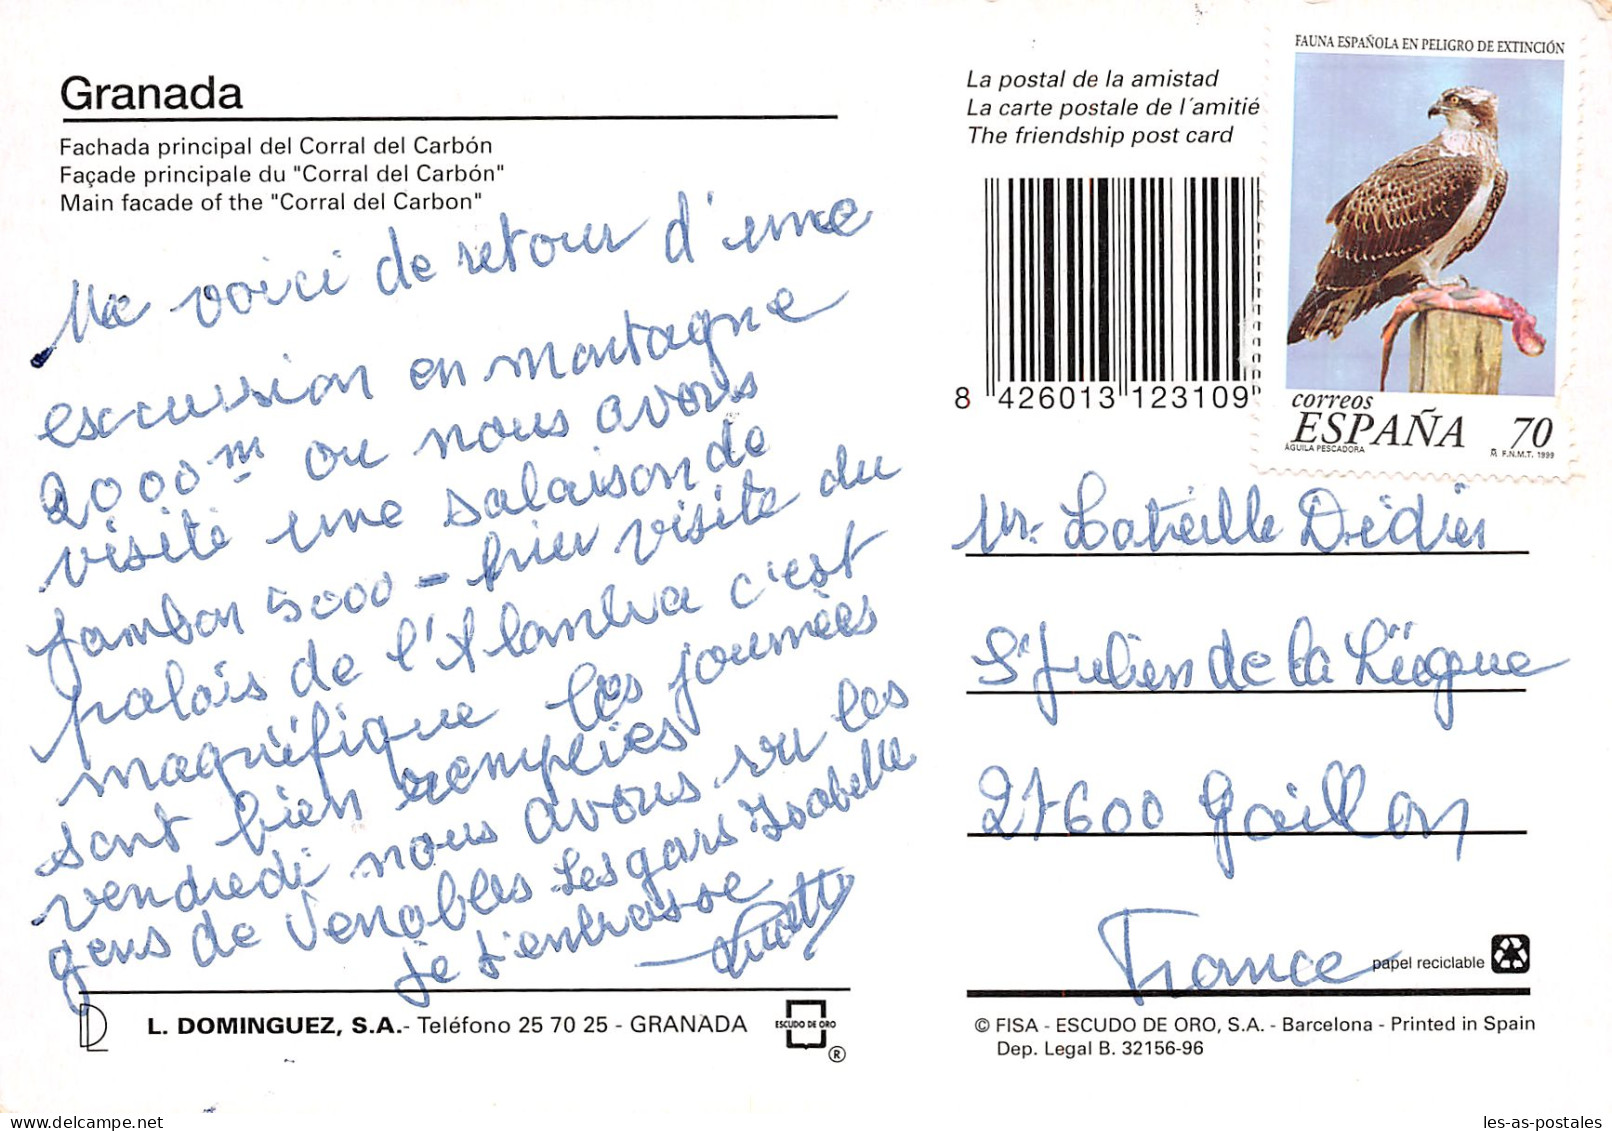 Granada
Fachada principal del Corral del Carbón
Façade principale du "Corral del Carbón"
Main facade of the "Corral del Carbon"
Me voici de retour d'une
excursion en montagne
2000 m ou nous avons
visité une salaison de
jambon 5000 - hier visite du
palais de l'Alambra c'est
magnifique les journées
sont bien remplies
vendredi nous avons vu les
gens de Venables Les gars Isabelle
je t'embrasse
L. DOMINGUEZ, S.A.- Teléfono 25 70 25 - GRANADA
ESCUDO DE ORO
®
La postal de la amistad
La carte postale de l'amitié
The friendship post card
8 426013 123109
FAUNA ESPAÑOLA EN PELIGRO DE EXTINCIÓN
correos
ESPAÑA 70
ÁGUILA PESCADORA
F.N.M.T. 1999
Mr. Latreille Dédier
St Julien de la Liègue
27600 Gaillon
France
papel reciclable
© FISA - ESCUDO DE ORO, S.A. - Barcelona - Printed in Spain
Dep. Legal B. 32156-96
les-as-postales